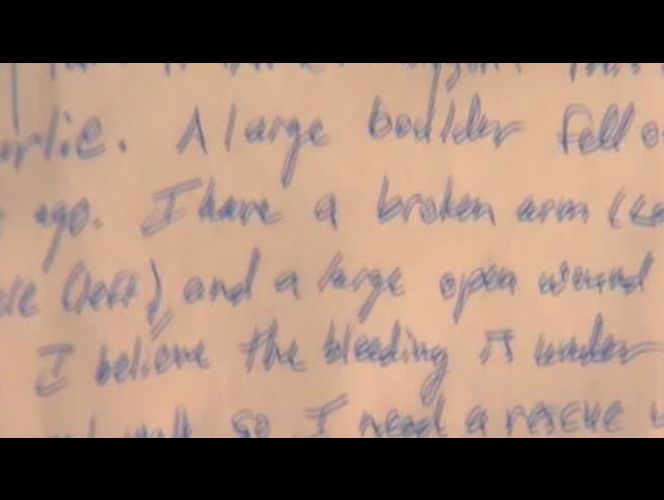 earlie. A large boulder fell o
ago. I have a broken arm (le
le (left), and a large open wound
I believe the bleeding is under
walk so I need a rescue